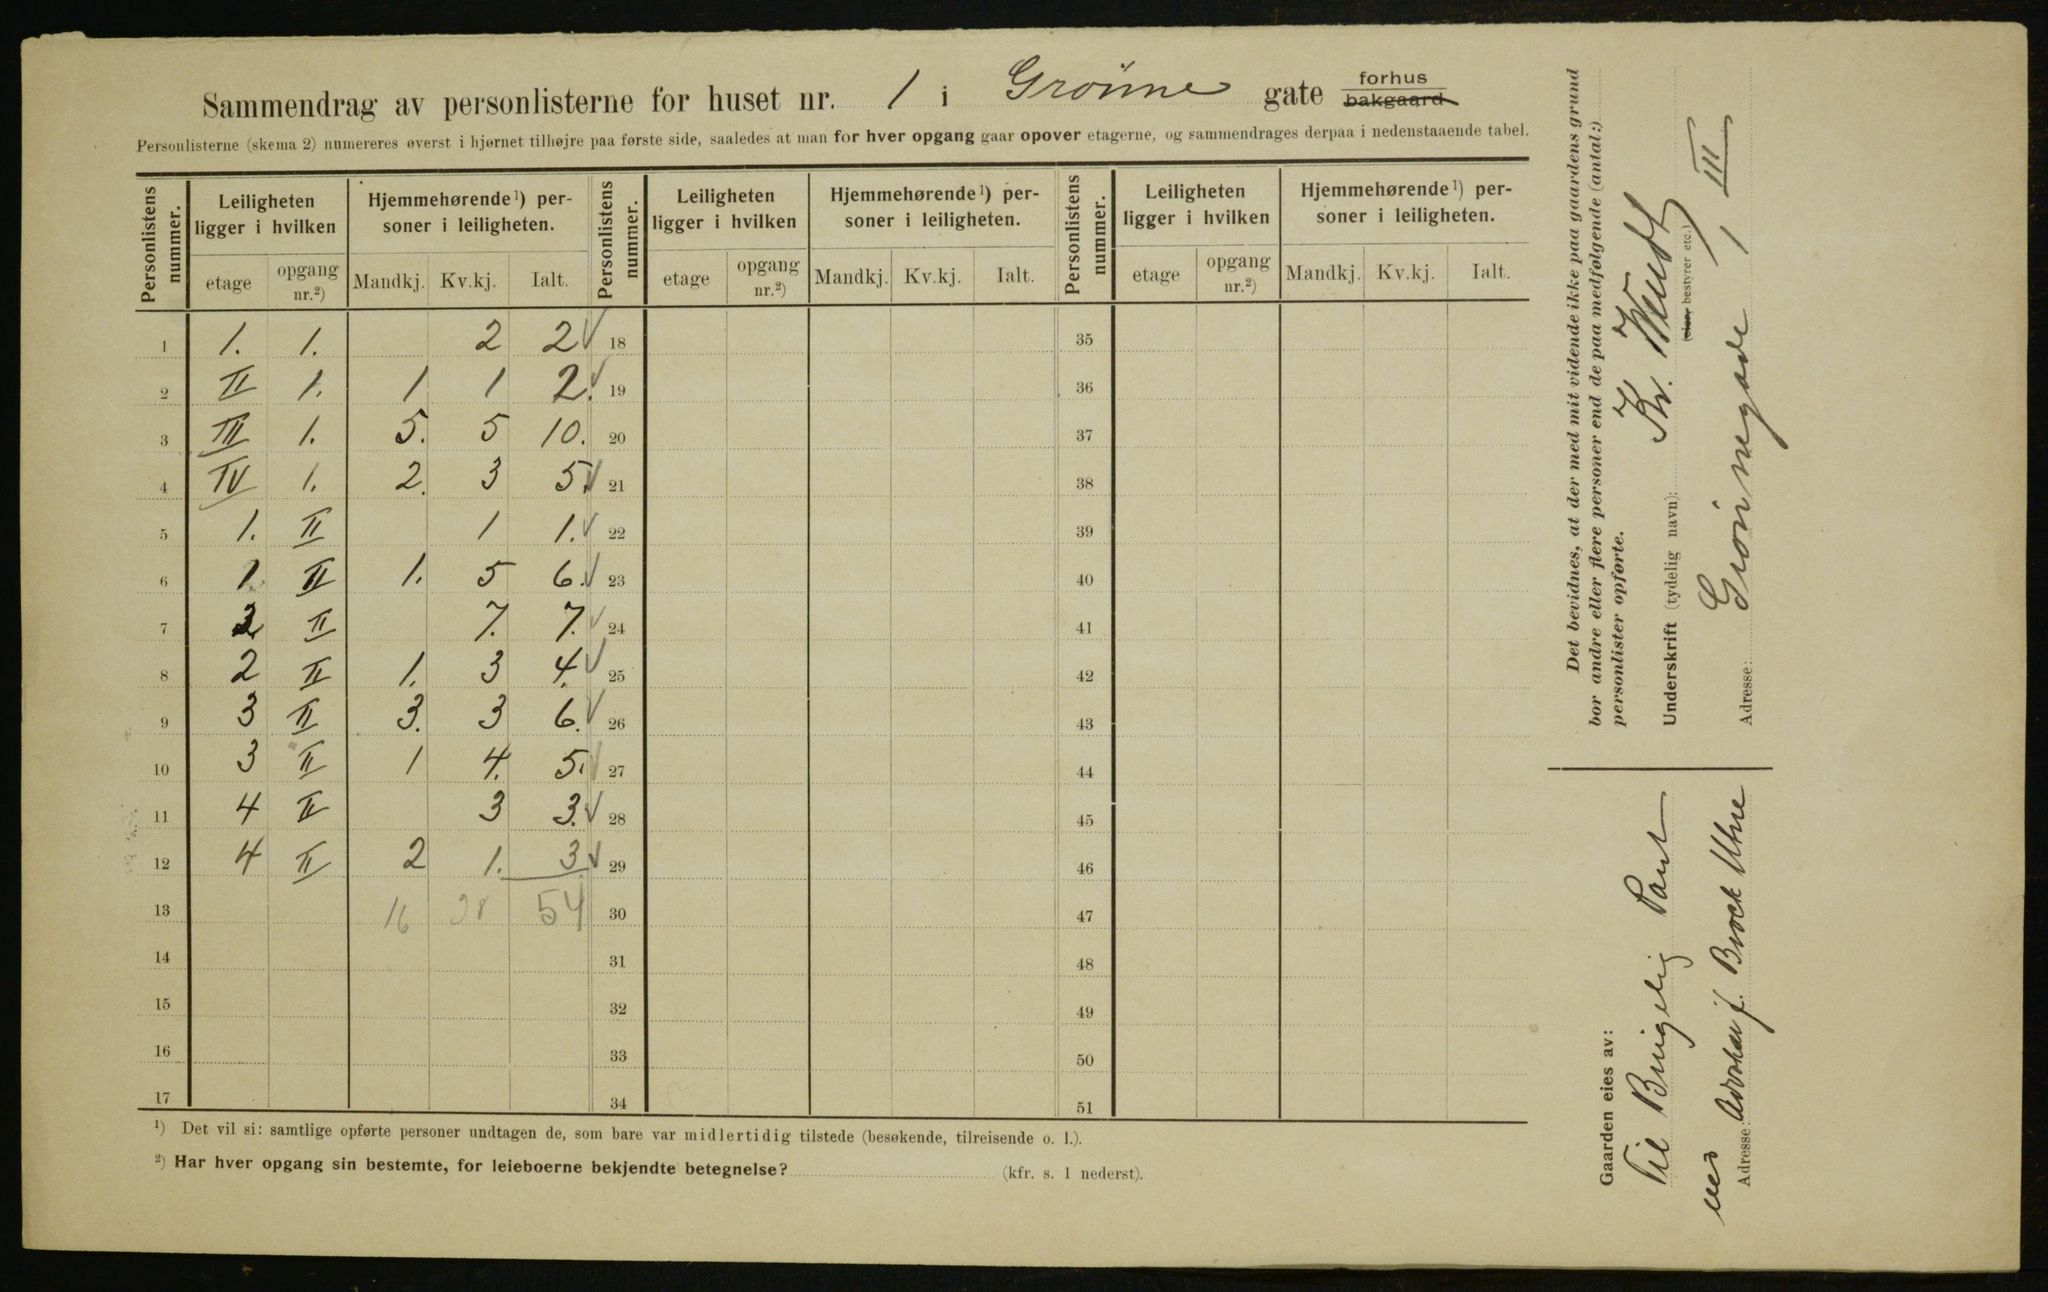 Sammendrag av personlisterne for huset nr. 1 i Grønne gate forhus bakgaard
Personlisterne (skema 2) numereres øverst i hjørnet tilhøjre paa første side, saaledes at man for hver opgang gaar opover etagerne, og sammendrages derpaa i nedenstaaende tabel.
Personlistens nummer. Leiligheten ligger i hvilken Hjemmehørende¹) personer i leiligheten. Personlistens nummer. Leiligheten ligger i hvilken Hjemmehørende¹) personer i leiligheten. Personlistens nummer. Leiligheten ligger i hvilken Hjemmehørende¹) personer i leiligheten.
etage opgang nr.²) Mandkj. Kv.kj. Ialt. etage opgang nr.²) Mandkj. Kv.kj. Ialt. etage opgang nr.²) Mandkj. Kv.kj. Ialt.
1 1. 1. 2 2 √ 18 35
2 II 1. 1 1 2. √ 19 36
3 III 1. 5. 5 10. 20 37
4 IV 1. 2. 3 5. √ 21 38
5 1. II 1 1. √ 22 39
6 1 II 1. 5 6. √ 23 40
7 2 II 7. 7. √ 24 41
8 2 II 1. 3 4. √ 25 42
9 3 II 3. 3 6. √ 26 43
10 3 II 1 4. 5. √ 27 44
11 4 II 3 3. √ 28 45
12 4 II 2 1. 3. √ 29 46
13 16 38 54 30 47
14 31 48
15 32 49
16 33 50
17 34 51
¹) Det vil si: samtlige opførte personer undtagen de, som bare var midlertidig tilstede (besøkende, tilreisende o. l.).
²) Har hver opgang sin bestemte, for leieboerne bekjendte betegnelse? (kfr. s. 1 nederst).
Det bevidnes, at der med mit vidende ikke paa gaardens grund
bor andre eller flere personer end de paa medfølgende (antal:)
personlister opførte.
Underskrift (tydelig navn): Kr. Wendt
(eier, bestyrer etc.)
Adresse: Grønnegade 1 III
Gaarden eies av:
Til Brugelig Pant
ved Advokat f. Brock Utne
Adresse: